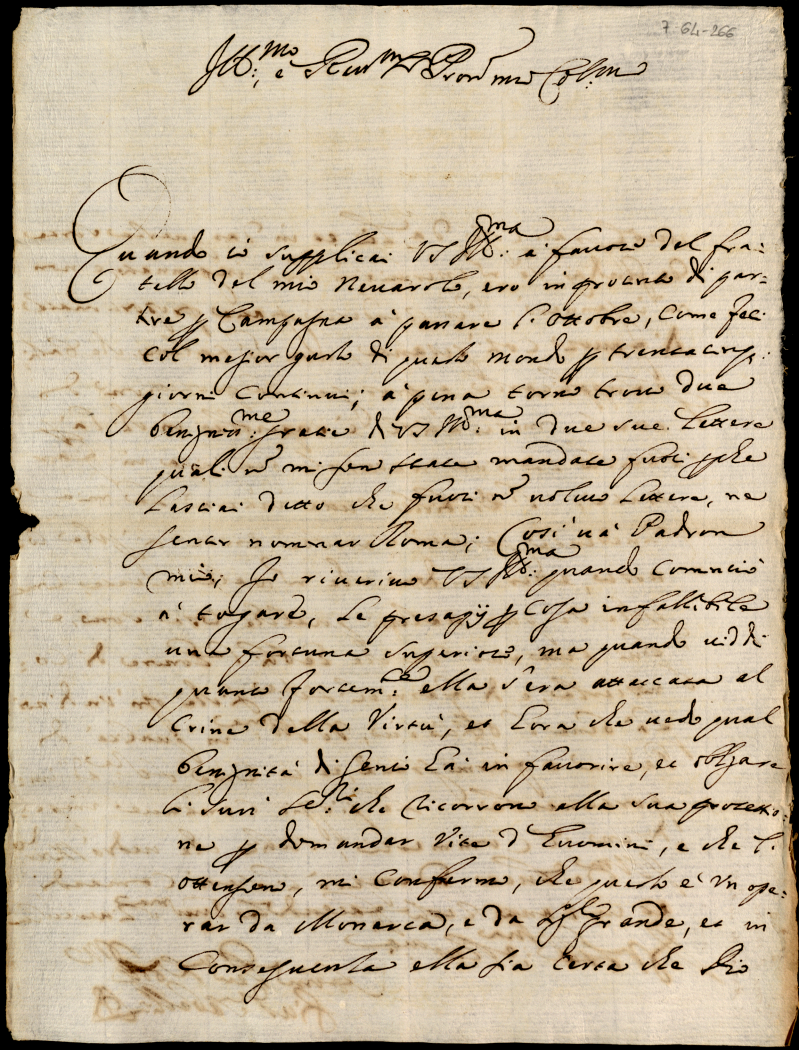 7-64-266
Ill.mo e Reu.mo Pron mio Col.mo
Quando io supplicai VS Ill.ma à fauore del fra-
tello del mio Neuarolo, ero in procinto di par-
tire p Campagna à passare l'Ottobre, come feci
col megior gusto di questo mondo p trentacinq.
giorni continui; à pena torno trouo due
benignis.me gratie di VS Ill.ma in due sue lettere
quali nō mi son state mandate fuori pche
lasciai detto che fuori nō voleuo lettere, ne
sentir nominar Roma; Cosi và Padron
mio, Io riueriuo VS Ill.ma quando cominciò
à togarsi, le presagij p cosa infallibile
una fortuna superiore, ma quando uiddi
quanto fortem.te ella s'era attaccata al
crine della Virtù, et hora che uedo qual
benignità di genio hà in fauorire, et obligare
li suoi Se.ri che ricorrono alla sua protettio-
ne p domandar Vite d'huomini, e che l'
ottengono, mi confermo, che questo è un ope-
rar da Monarca, e da grande, et in
conseguenza ella sia certa che Dio